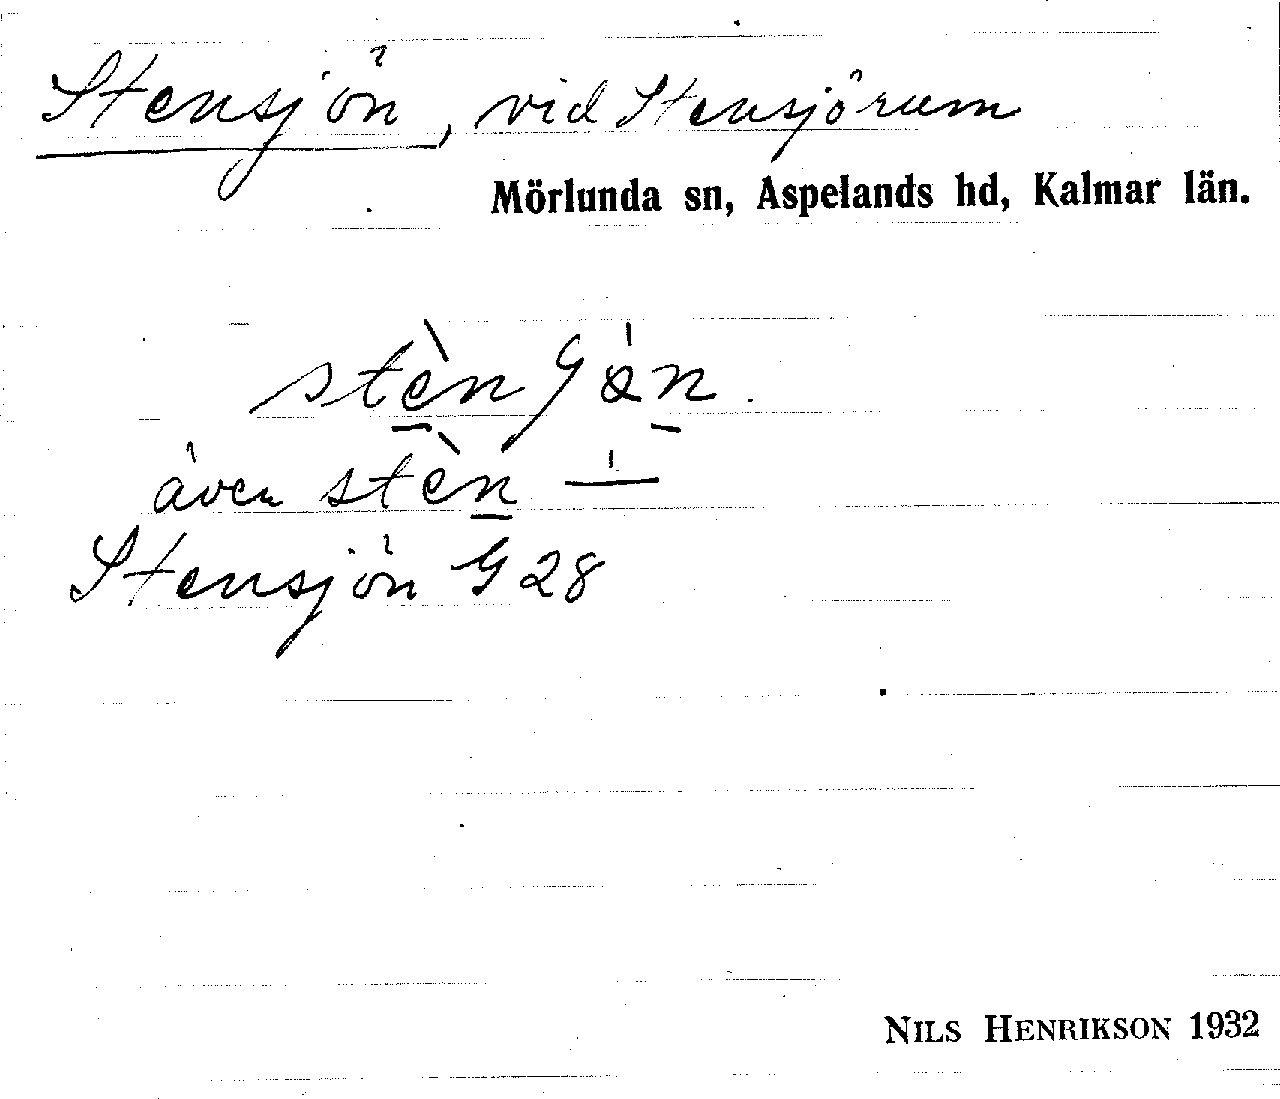 Stensjön, vid Stensjörum
Mörlunda sn, Aspelands hd, Kalmar län.
även stèn
Stensjön G 28
NILS HENRIKSON 1932